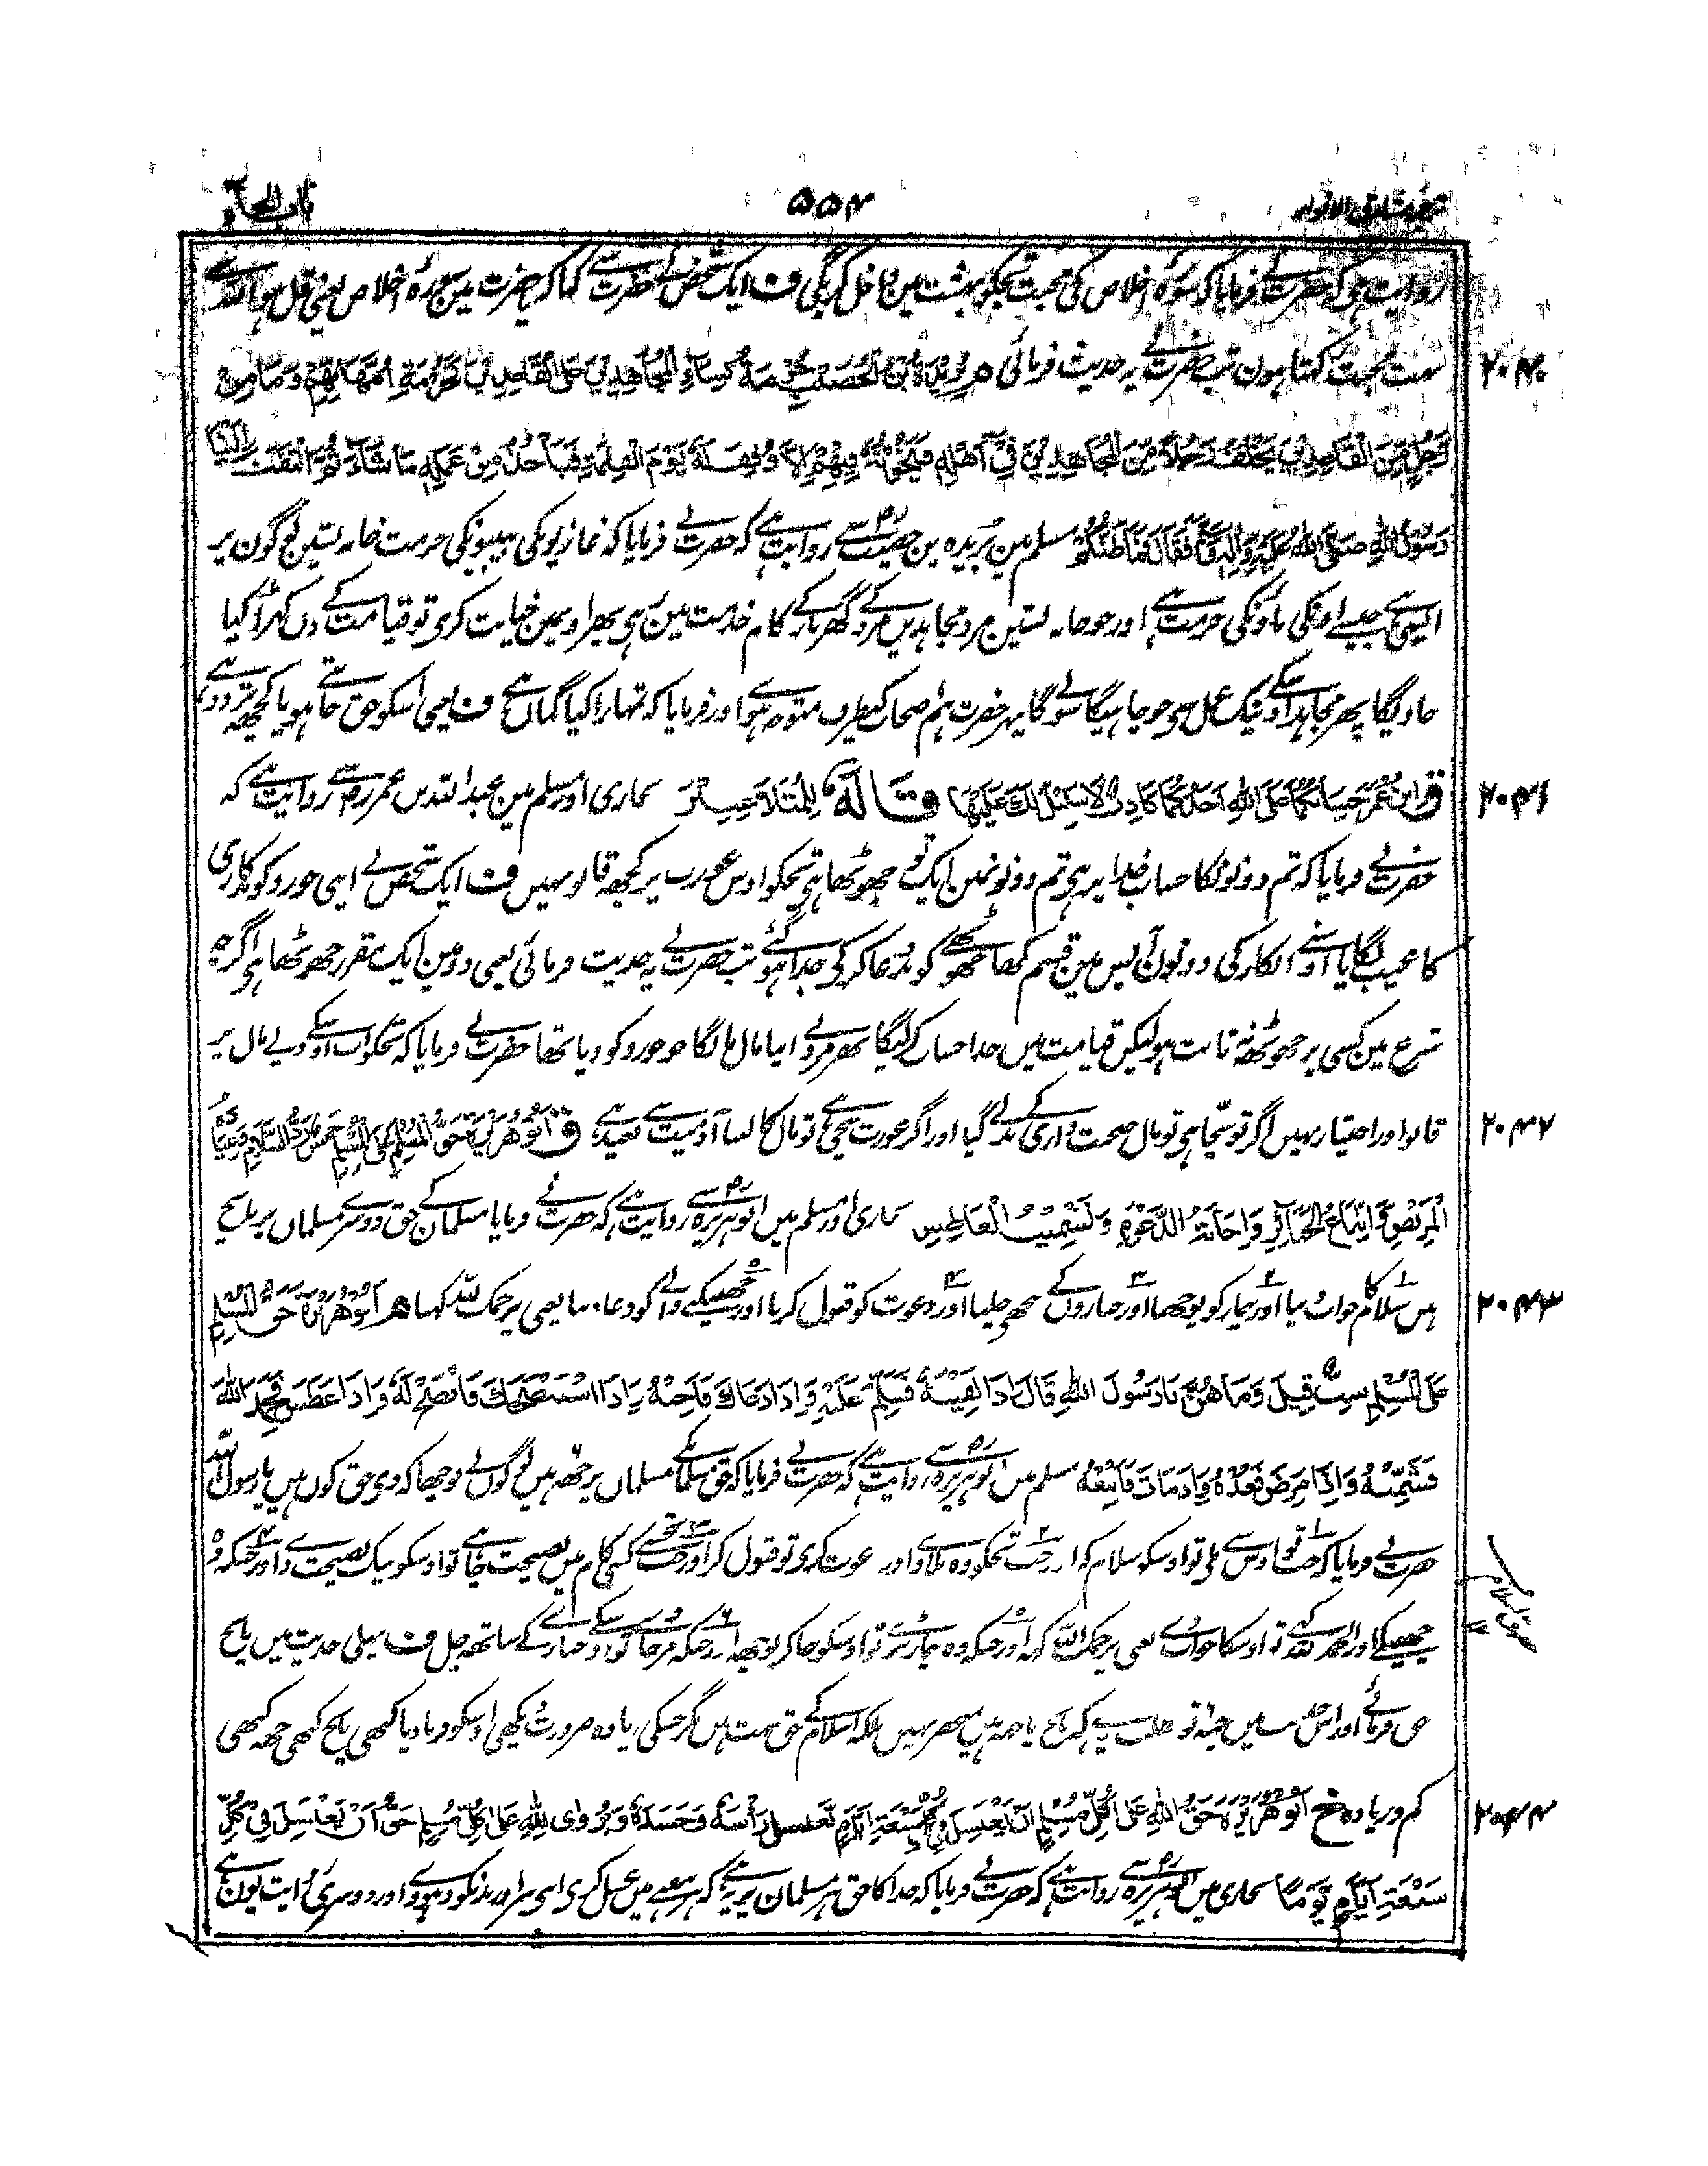 باب الحاء
۵۵۴
تحفۃ مشارق الانوار
روایت ہی کہ حضرت نے فرمایا کہ سورۂ اخلاص کی محبت تجکو بہشت مین داخل کریگی ف ایک شخص نے حضرت سے کہا کہ یا حضرت مین سورۂ اخلاص یعنی قل ہو اللہ سے
بہت محبت رکھتا ہون تب حضرت نے یہ حدیث فرمائی م بُرَيْدَةُ بْنُ الْحُصَيْبِ حُرْمَةُ نِسَاءِ الْمُجَاهِدِينَ عَلَى الْقَاعِدِينَ كَحُرْمَةِ أُمَّهَاتِهِمْ وَمَا مِنْ
۲۰۴۰
رَجُلٍ مِنَ الْقَاعِدِينَ يَخْلُفُ رَجُلًا مِنَ الْمُجَاهِدِينَ فِي أَهْلِهِ فَيَخُونُهُ فِيهِمْ إِلَّا وُقِفَ لَهُ يَوْمَ الْقِيمَةِ فَيَأْخُذُ مِنْ عَمَلِهِ مَا شَاءَ ثُمَّ الْتَفَتَ إِلَيْنَا
رَسُولُ اللهِ صَلَّى اللهُ عَلَيْهِ وَآلِهِ فَقَالَ فَمَا ظَنُّكُمْ مسلم مین بُریدہ بن حصیب سے روایت ہے کہ حضرت نے فرمایا کہ غازیونکی بیبیونکی حرمت خانہ نشین لوگون پر
ایسی ہے جیسے اونکی ماؤنکی حرمت ہے اور جو خانہ نشین مرد مجاہدین مرد کے گھر بار کے کام خدمت مین رہی پھر اوسمین خیانت کری تو قیامت کے دن کھڑا کیا
جاویگا پھر مجاہد اوسکے نیک عمل سی جو چاہیگا سو لیگا پھر حضرت ہم اصحاب کیطرف متوجہ ہوے اور فرمایا کہ تمہارا کیا گمان ہے ف یعنی اسکو حق جانتے ہو یا کچھ تردد ہے
ق ابْنُ عُمَرَ حِسَابُكُمَا عَلَى اللهِ أَحَدُكُمَا كَاذِبٌ لَا سَبِيلَ لَكَ عَلَيْهَا قَالَهُ لِلْمُتَلَاعِنَيْنِ بخاری اور مسلم مین عبد اللہ بن عمر رض سے روایت ہے کہ
۲۰۴۱
حضرت نے فرمایا کہ تم دونونکا حساب خدا پر ہی تم دونونمین ایک تو جھوٹھا ہی تجکو اوس عورت پر کچھ قابو نہیں ف ایک شخص نے اپنی جورو کو بدکاری
کا عیب لگایا اوسنے انکار کی دونون آپس مین قسم کھا جھوٹھے کو بدعا کر کی جدا ہو گئے تب حضرت نے یہ حدیث فرمائی یعنی دو مین ایک مقرر جھوٹھا ہی اگرچہ
شرع مین کسی پر جھوٹھ نہ ثابت ہو لیکن قیامت میں خدا حساب کریگا پھر مرد نے اپنا مال مانگا جو جورو کو دیا تھا حضرت نے فرمایا کہ تجکو اب اوسکے دیے مال پر
قابو اور اختیار نہیں اگر تو سچا ہی تو مال صحبت داری کے بدلے گیا اور اگر عورت سچی ہے تو مال کا لینا آدمیت سے بعید ہے ق أَبُو هُرَيْرَةَ حَقُّ الْمُسْلِمِ عَلَى الْمُسْلِمِ خَمْسٌ رَدُّ السَّلَامِ وَعِيَادَةُ
۲۰۴۲
الْمَرِيضِ وَاتِّبَاعُ الْجَنَائِزِ وَإِجَابَةُ الدَّعْوَةِ وَتَشْمِيتُ الْعَاطِسِ بخاری اور مسلم میں ابو ہریرہ رض سے روایت ہے کہ حضرت نے فرمایا مسلمان کے حق دوسرے مسلمان پر پانچ
ہیں سلام کا جواب دینا اور بیمار کو پوچھنا اور جنازون کے ساتھ چلنا اور دعوت کو قبول کرنا اور چھینکنے والے کو دعا دینا یعنی یرحمک اللہ کہنا م أَبُو هُرَيْرَةَ حَقُّ الْمُسْلِمِ
۲۰۴۳
عَلَى الْمُسْلِمِ سِتٌّ قِيلَ وَمَا هُنَّ يَا رَسُولَ اللهِ قَالَ إِذَا لَقِيتَهُ فَسَلِّمْ عَلَيْهِ وَإِذَا دَعَاكَ فَأَجِبْهُ وَإِذَا اسْتَنْصَحَكَ فَانْصَحْ لَهُ وَإِذَا عَطَسَ فَحَمِدَ اللهَ
فَشَمِّتْهُ وَإِذَا مَرِضَ فَعُدْهُ وَإِذَا مَاتَ فَاتَّبِعْهُ مسلم میں ابو ہریرہ رض سے روایت ہے کہ حضرت نے فرمایا کہ حق مسلمان کے مسلمان پر چھ ہیں لوگون نے پوچھا کہ وی حق کون ہیں یا رسول اللہ
حضرت نے فرمایا کہ جب تو اوس سے ملی تو اوسکو سلام کر اور جب تجکو وہ بلاوے اور دعوت کری تو قبول کر اور جب تجھسے کسی کام میں نصیحت چاہے تو اوسکو نیک نصیحت دے اور جبکہ وہ
چھینکے اور الحمد للہ کہے تو اوسکا جواب دے یعنی یرحمک اللہ کہہ اور جبکہ وہ بیمار پڑے تو اوسکو جا کر پوچھ اور جبکہ مرجاوے تو اوسکے جنازے کے ساتھ چل ف پہلی حدیث میں پانچ
حق فرمائے اور اس حدیث میں چھ تو مطلب یہ ہے کہ پانچ یا چھ میں منحصر نہیں بلکہ اسلام کے حق بہت ہیں مگر جسکی زیادہ ضرورت دیکھی اوسکو فرمادیا کبھی پانچ کبھی چھ کبھی
کم و زیادہ خ أَبُو هُرَيْرَةَ حَقُّ اللهِ عَلَى كُلِّ مُسْلِمٍ أَنْ يَغْتَسِلَ فِي كُلِّ سَبْعَةِ أَيَّامٍ يَغْسِلُ رَأْسَهُ وَجَسَدَهُ وَيُرْوٰى لِلهِ عَلَى كُلِّ مُسْلِمٍ حَقٌّ أَنْ يَغْتَسِلَ فِي كُلِّ
۲۰۴۴
سَبْعَةِ أَيَّامٍ يَوْمًا بخاری میں ابو ہریرہ رض سے روایت ہے کہ حضرت نے فرمایا کہ خدا کا حق ہر مسلمان پر یہ ہے کہ ہر ہفتے میں غسل کری اپنی سر اور بدنکو دہووے اور دوسری روایت یون ہے
حقوق اسلام